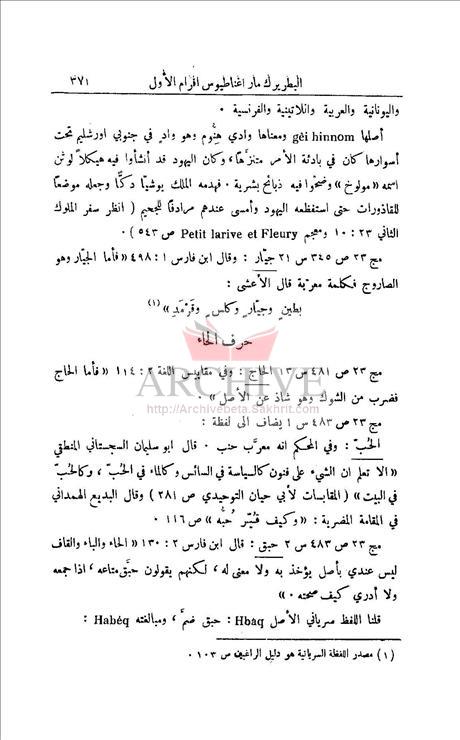 البطريرك مار اغناطيوس افرام الأول ٣٧١
واليونانية والعربية واللاتينية والفرنسية ٠
أصلها gèi hinnom ومعناها وادي هنّوم وهو وادٍ في جنوبي اورشليم تحت
أسوارها كان في بادئة الأمر متنزهاً ، وكان اليهود قد أنشأوا فيه هيكلاً لوثن
اسمه «مولوخ» وضحّوا فيه ذبائح بشرية ٠ فهدمه الملك يوشيّا دكّاً وجعله موضعاً
للقاذورات حتى استفظعه اليهود وأمسى عندهم مرادفاً للجحيم ( انظر سفر الملوك
الثاني ٢٣ : ١٠ ومعجم Petit larive et Fleury ص ٥٤٣ ) ٠
مج ٢٣ ص ٣٤٥ س ٢١ جيّار : وقال ابن فارس ١ : ٤٩٨ «فأما الجيّار وهو
الصاروج فكلمة معربة قال الأعشى :
بطين وجيّارٍ وكلسٍ وقَرْمَدِ » (١)
حرف الحاء
مج ٢٣ ص ٤٨١ س ١٣ الحاج : وفي مقاييس اللغة ٢ : ١١٤ « فأما الحاج
فضرب من الشوك وهو شاذ عن الأصل » ٠
مج ٢٣ ص ٤٨٣ س ١ يضاف الى لفظة :
الحُبّ : وفي المحكم انه معرّب حنب ٠ قال ابو سليمان السجستاني المنطقي
«الا تعلم ان الشيء على فنون كالسياسة في السائس وكالماء في الحُبّ ، وكالحُبّ
في البيت » ( المقابسات لأبي حيان التوحيدي ص ٢٨١ ) وقال البديع الهمداني
في المقامة المضرية : «وكيف قُيّر حُبّه » ص ١١٦ ٠
مج ٢٣ ص ٤٨٣ س ٢ حبق : قال ابن فارس ٢ : ١٣٠ « الحاء والباء والقاف
ليس عندي بأصل يؤخذ به ولا معنى له ، لكنهم يقولون حبّق متاعه ، اذا جمعه
ولا أدري كيف صحته ٠ »
قلنا اللفظ سرياني الأصل Hbaq : حبق ضمَّ ، ومبالغته Habéq :
(١) مصدر اللفظة السريانية هو دليل الراغبين ص ١٠٣ ٠
ARCHIVE
http://Archivebeta.Sakhrit.com